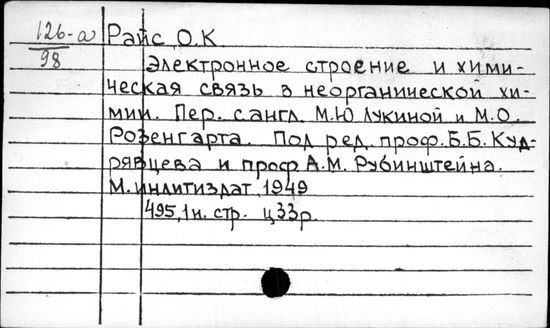 126-а
98
Райс О.К
Электронное строение и хими-
ческая связь в неорганической хи-
мии. Пер. с англ. М.Ю Лукиной и М.О.
Розенгарта. Под ред. проф. Б.Б. Куд-
рявцева и проф А.М. Рубинштейна.
М. Инлитиздат, 1949
495,1 н. стр. ц 33 р.